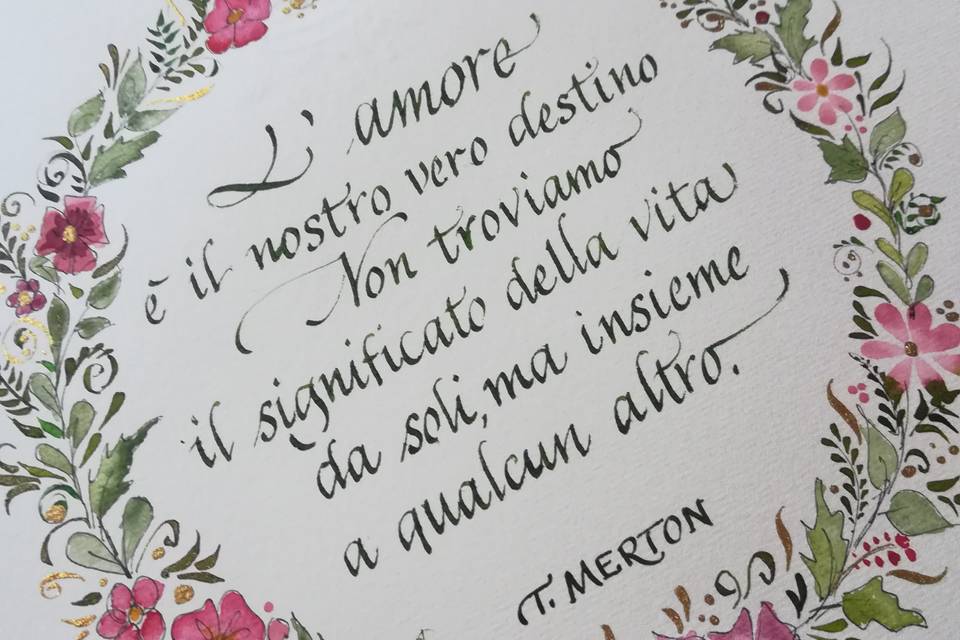 L'amore
è il nostro vero destino
Non troviamo
il significato della vita
da soli, ma insieme
a qualcun altro.
T. MERTON